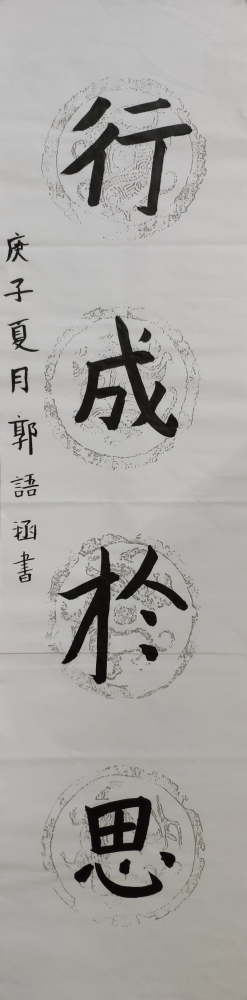 行成於思
庚子夏月郭語涵書